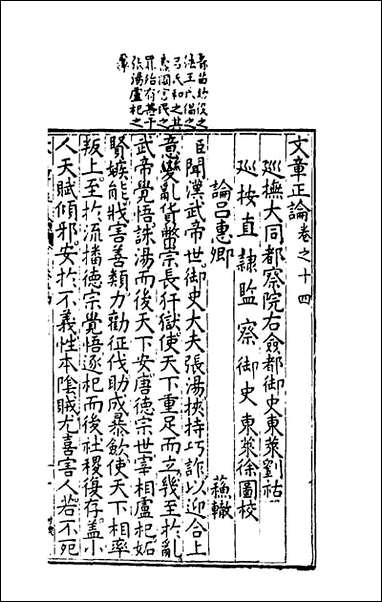 青苗助役之
法王氏倡之
呂氏和之其
罪殆有甚于
張湯盧杞之
文章正論卷之十四
巡撫大同都察院右僉都御史東萊劉祜
巡按直隸監察御史東萊徐圖校
論呂惠卿
蘓轍
臣聞漢武帝世御史大夫張湯挾持巧詐以迎合上
意變亂貨幣崇長犴獄使天下重足而立幾至於亂
武帝覺悟誅湯而後天下安唐德宗世宰相盧杞妬
賢嫉能戕害善類力勸征伐助成暴歛使天下相率
叛上至於流播德宗覺悟逐杞而後社稷復存蓋小
人天賦傾邪安於不義性本陰賊尤喜害人若不死